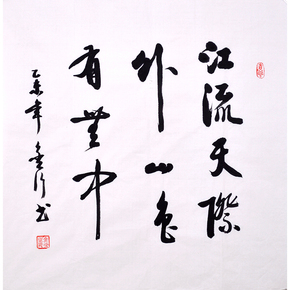 江流天際
外山色
有無中
乙未年
書